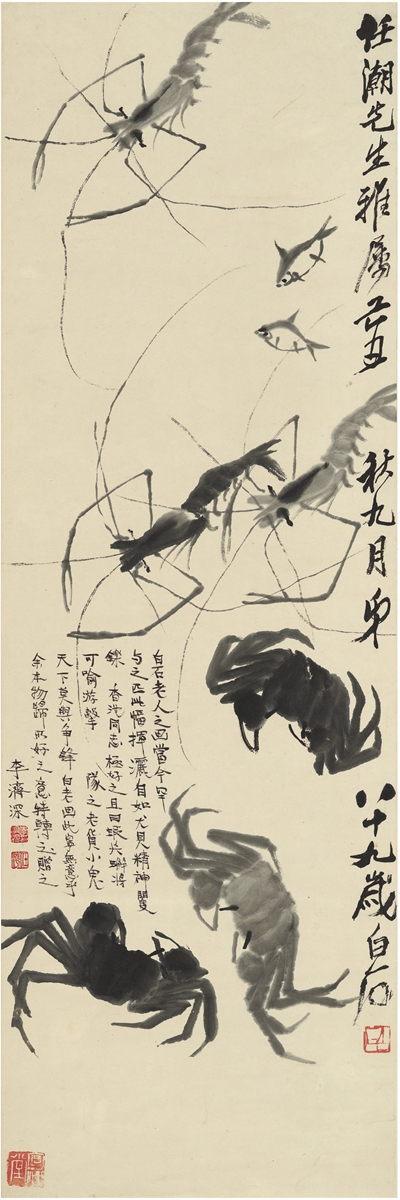 任潮先生雅屬 己丑 秋九月 弟 八十九歲白石
白石老人之画當今罕
与之匹此幅揮灑自如尤見精神矍
鑠 香同志極好之且曰蝦兵蟹將
可喻游擊隊之老貨小鬼
天下莫與爭鋒白老画此寧無意乎
余本物歸所好之意特轉以贈之
李濟深